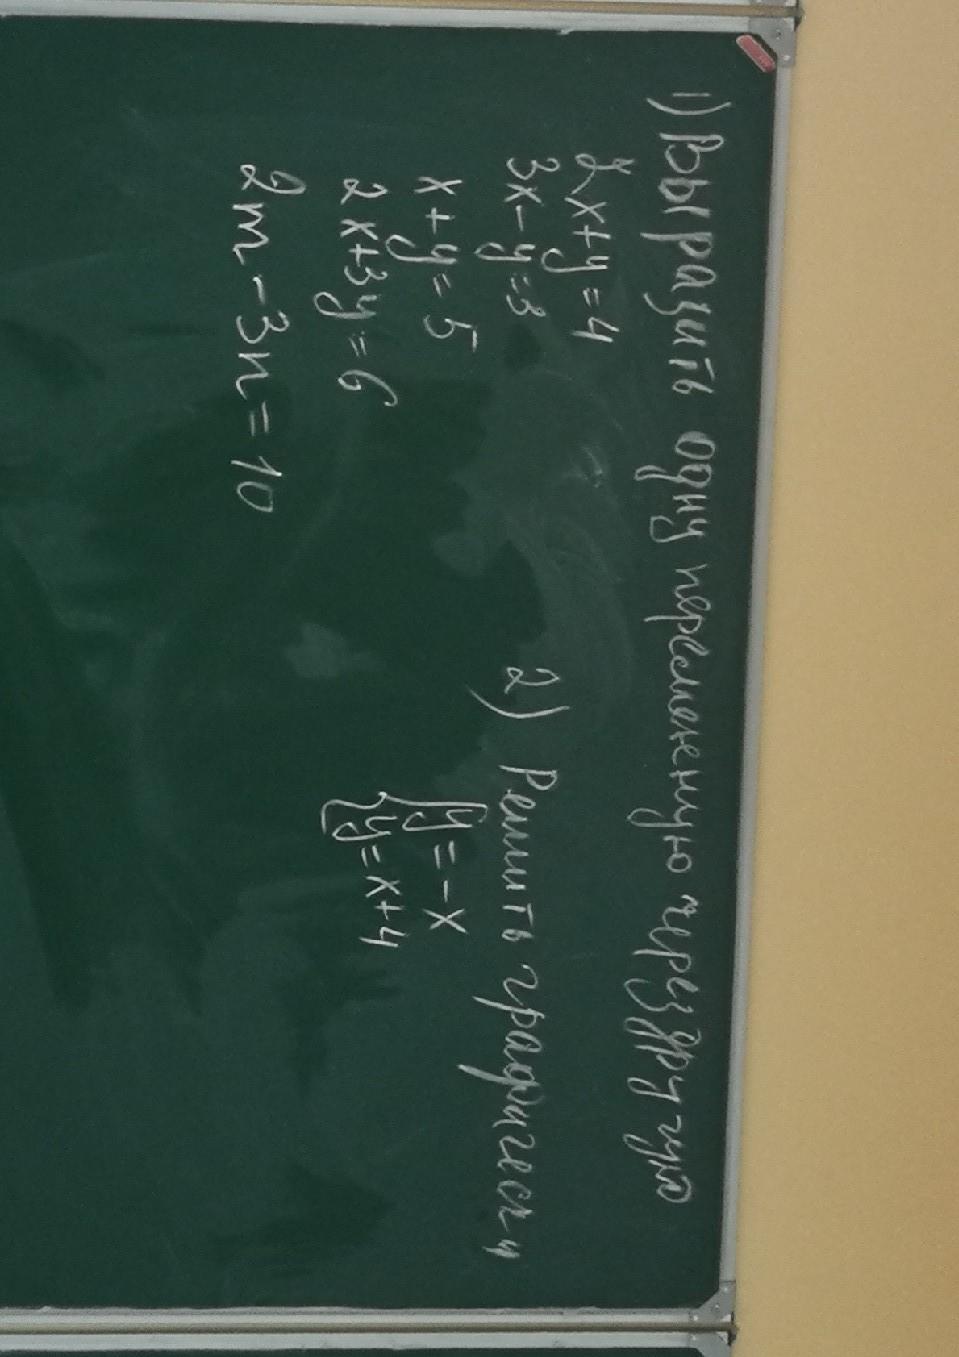 1) Выразить одну переменную через другую
2x+y=4
3x-y=3
x+y=5
2x+3y=6
2m-3n=10
2) Решить графически
{y=-x
{y=x+4